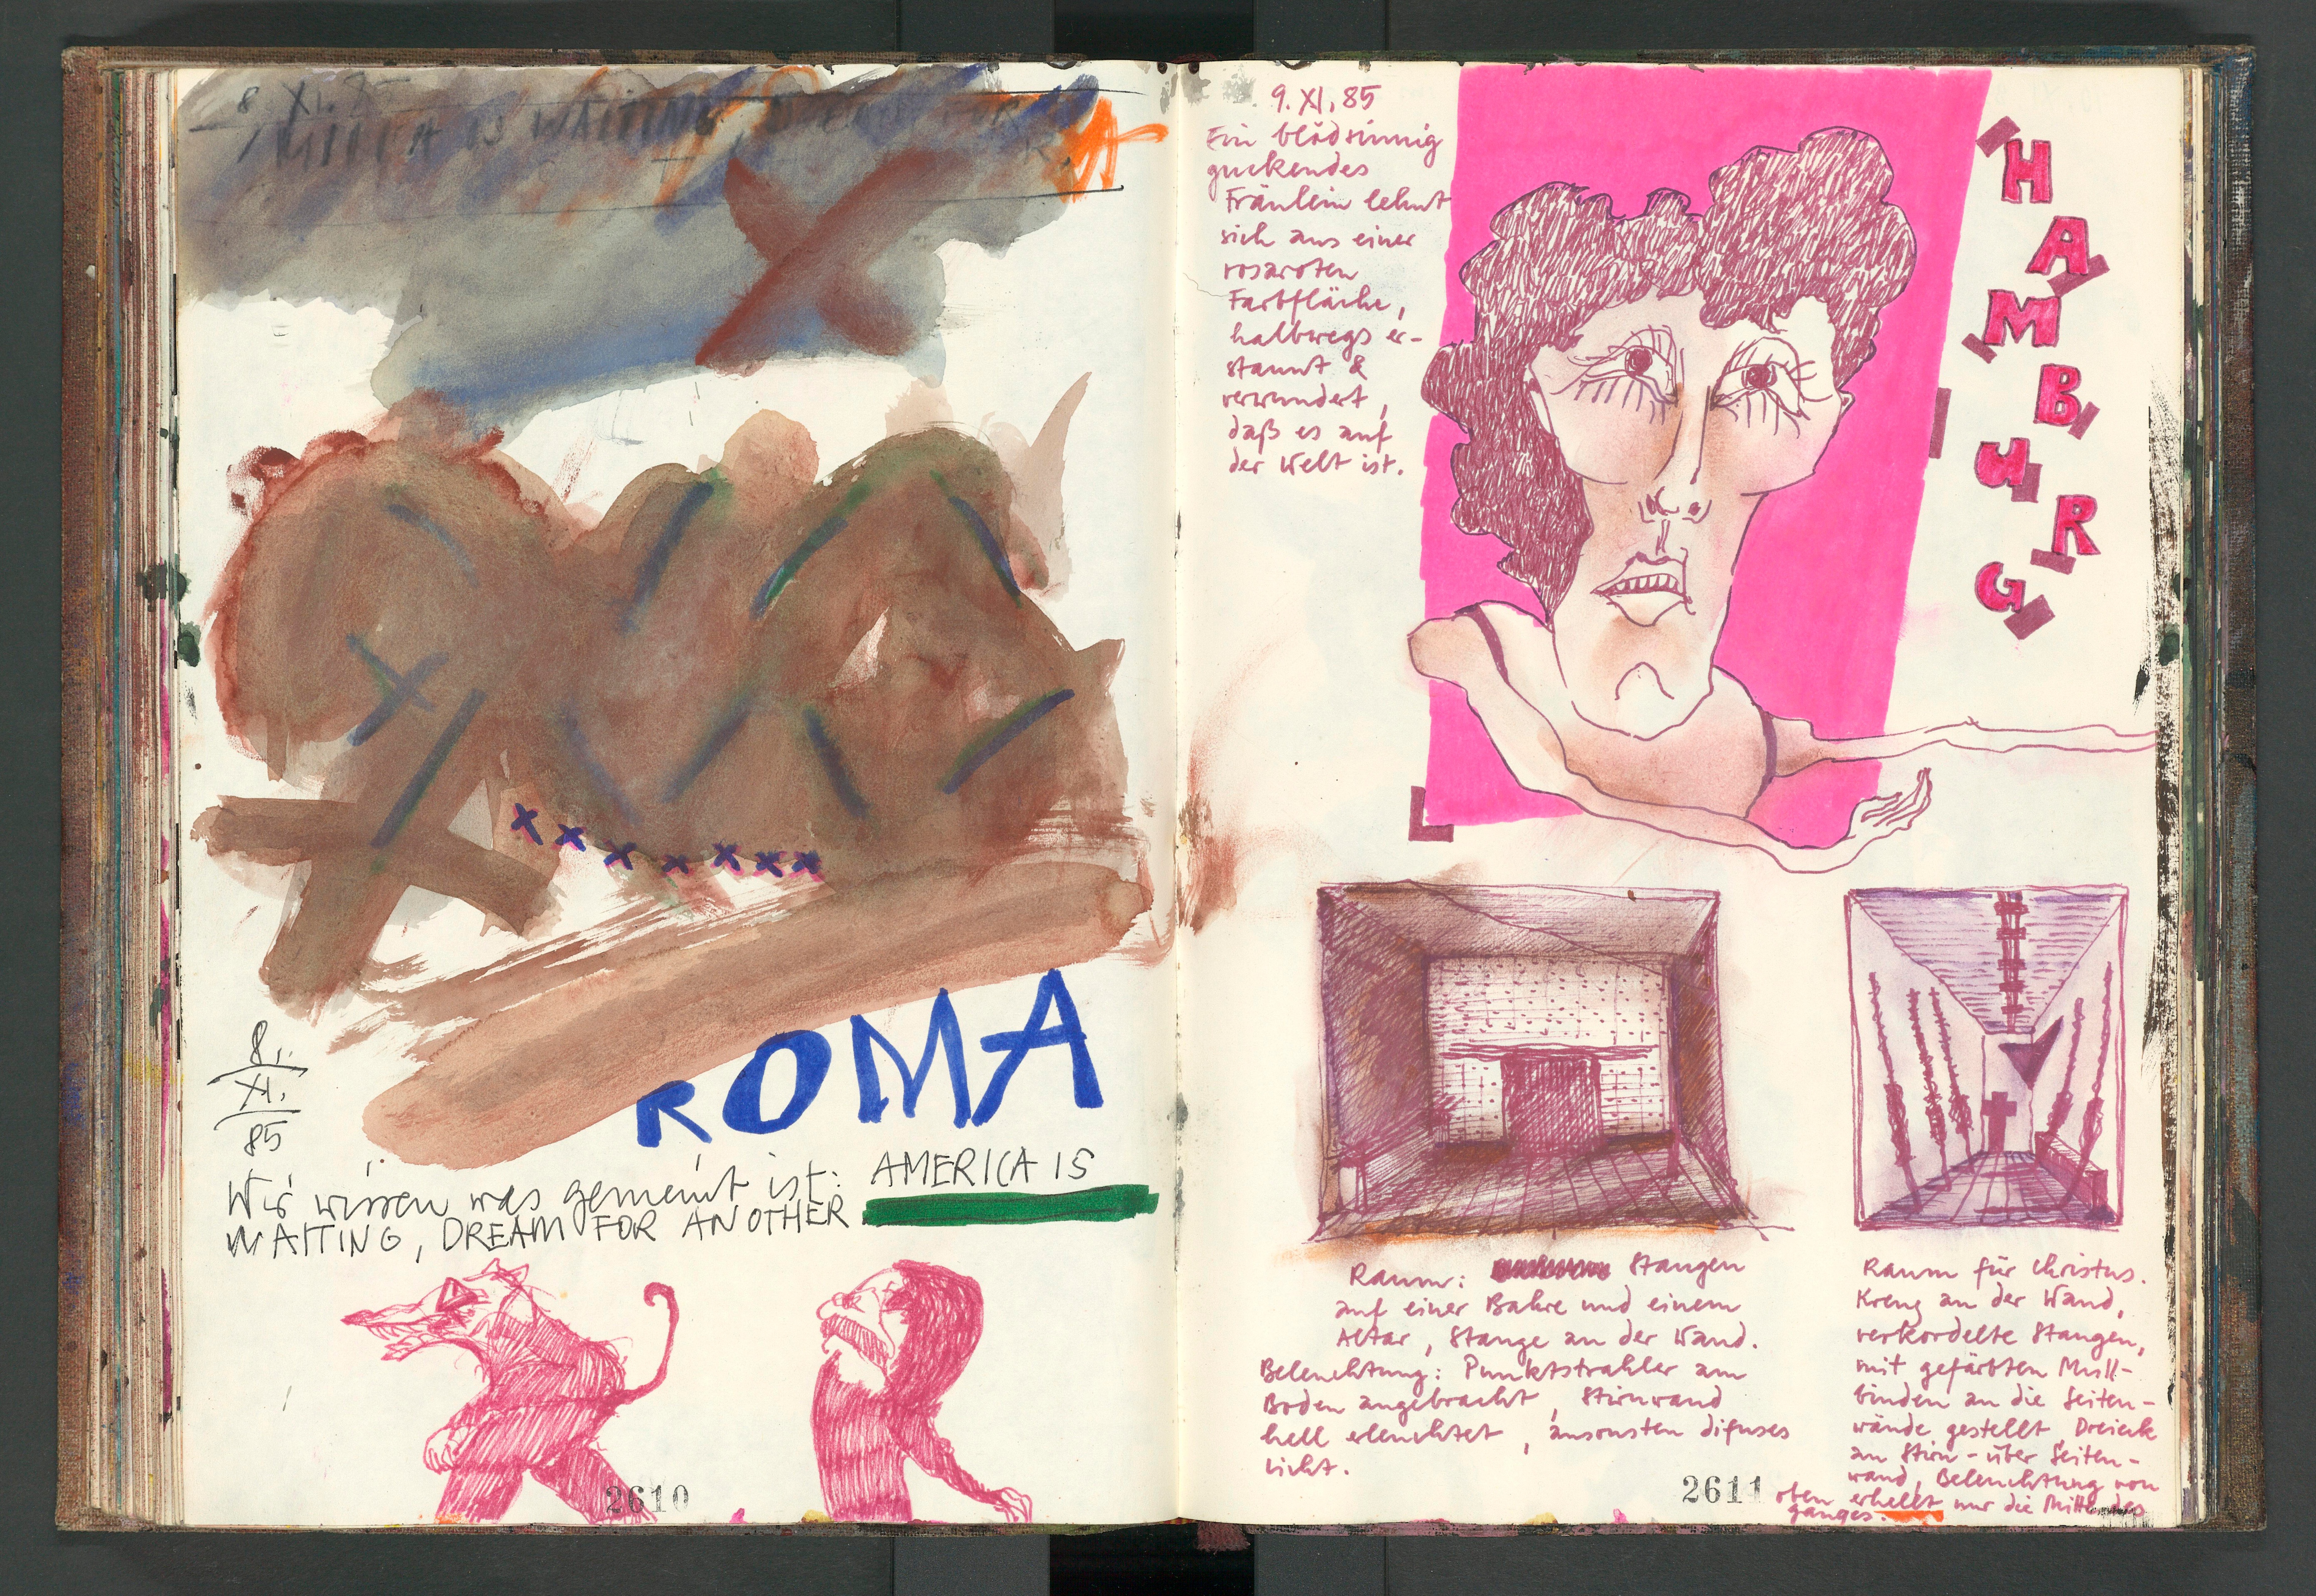 8 XI.
IS WAITING,
8.
XI.
85
ROMA
Wir wissen was gemeint ist: AMERICA IS
WAITING, DREAM FOR ANOTHER
2610
9. XI. 85
Ein blödsinnig
guckendes
Fräulein lehnt
sich aus einer
rosaroten
Farbfläche,
halbwegs er-
staunt &
verwundert,
daß es auf
der Welt ist.
HAMBURG
Raum: Stangen
auf einer Bahre und einem
Altar, Stange an der Wand.
Beleuchtung: Punktstrahler am
Boden angebracht, Stirnwand
hell erleuchtet, ansonsten difuses
Licht.
Raum für Christus.
Kreuz an der Wand,
verkordelte Stangen,
mit gefärbten Mull-
binden an die Seiten-
wände gestellt, Dreieck
an Stirn- über Seiten-
wand, Beleuchtung von
oben erhellt nur die Mitte des
ganges.
2611